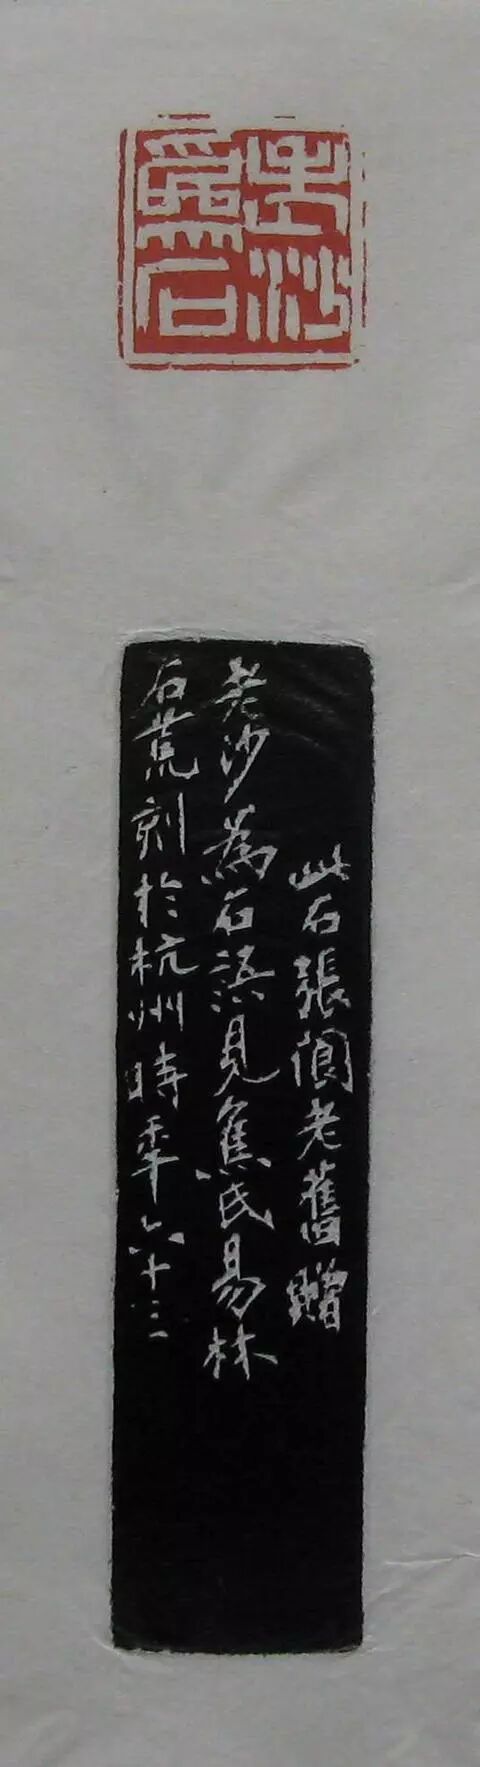 老沙
為石
此石張閬老舊贈
老沙為石語見焦氏易林
石荒刻於杭州時年六十三